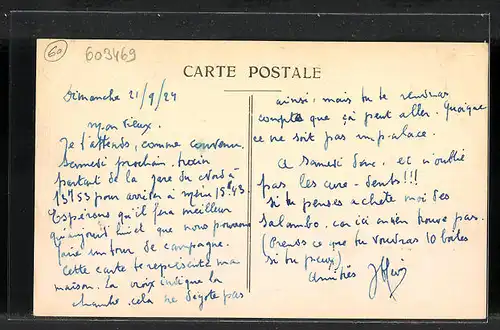 60
603469
CARTE POSTALE
Dimanche 21/9/24
Mon vieux.
Je t'attends, comme convenu
samedi prochain, train
partant de la gare du Nord à
13h53 pour arriver à 15h43.
Espérons qu'il fera meilleur
qu'aujourd'hui et que nous pourrons
faire un tour de campagne.
Cette carte te représente ma
maison. La croix indique la
chambre. cela ne dégote pas
ainsi, mais tu te rendras
compte que ça peut aller. Quoique
ce ne soit pas un palace.
A Samedi donc, et n'oublie
pas les cure-dents!!!
si tu penses achète moi des
Salambo, car ici on n'en trouve pas.
(Prends ce que tu voudras 10 boîtes
si tu peux)
Amitiés